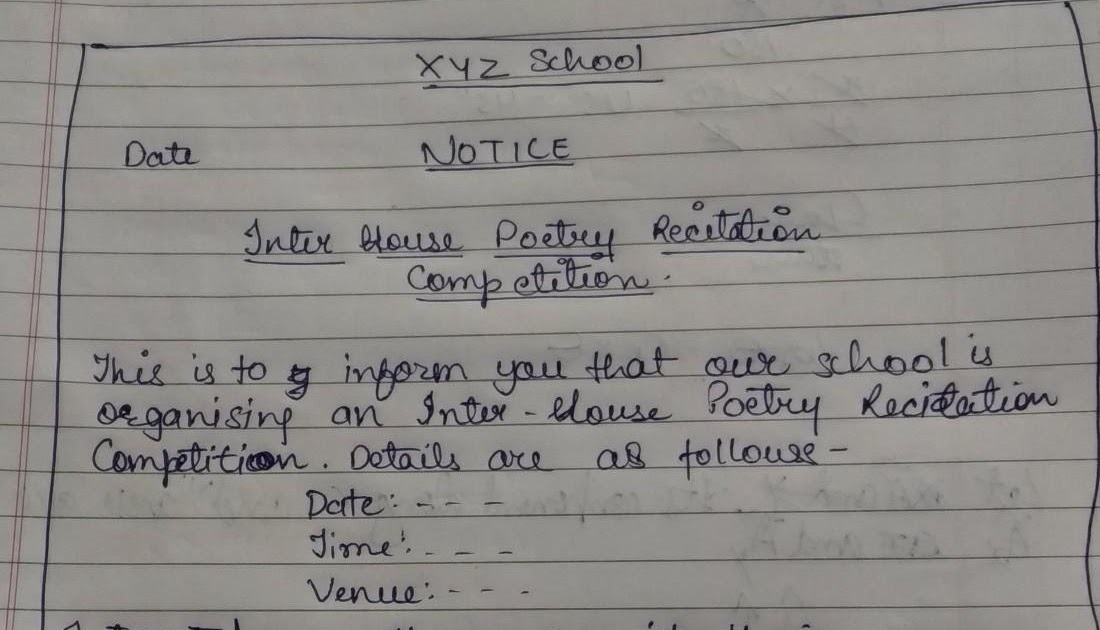 XYZ School
Date NOTICE
Inter House Poetry Recitation
Competition.
This is to inform you that our school is
organising an Inter-House Poetry Recitation
Competition. Details are as follows-
Date: - - -
Time: - - -
Venue: - - -